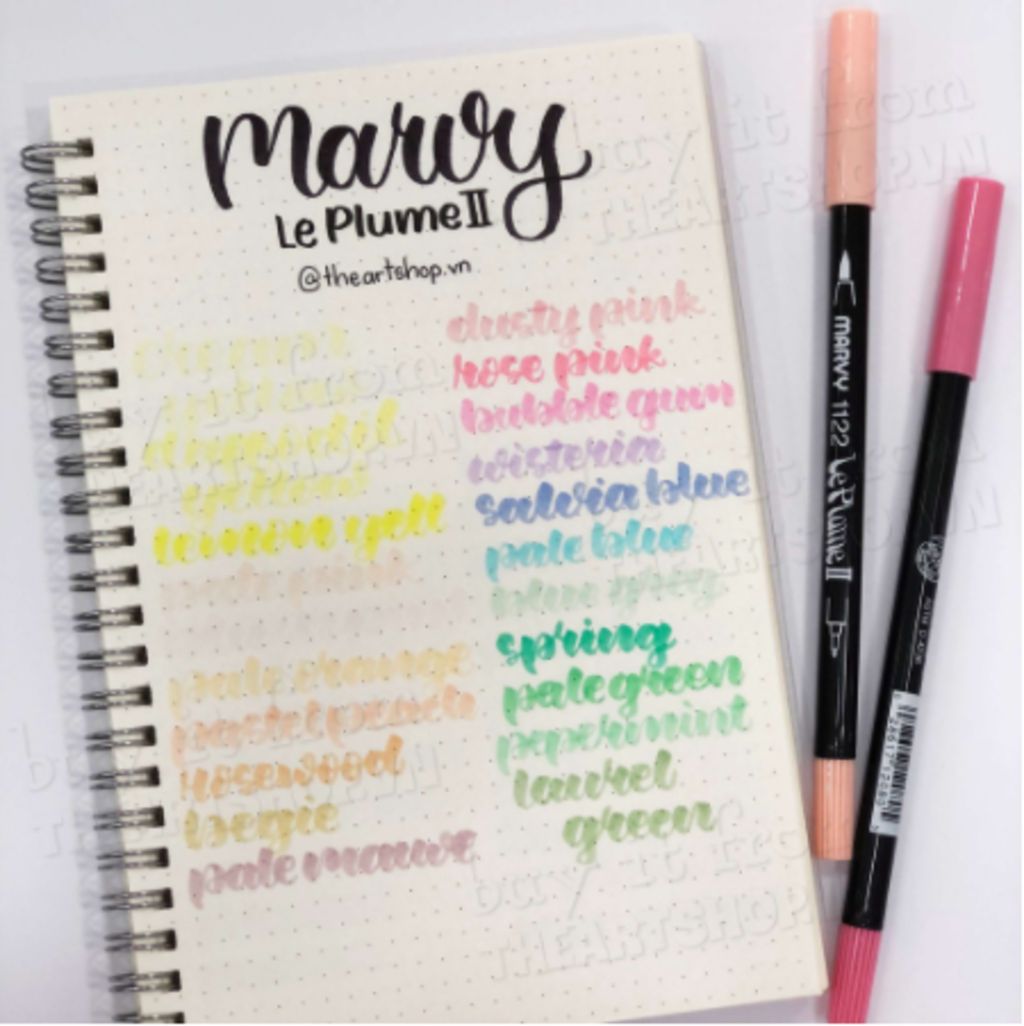 Marvy
Le Plume II
@theartshop.vn
daffodil
yellow
lemon yell
pale pink
pale orange
pastel peach
rosewood
begie
pale mauve
dusty pink
rose pink
bubble gum
wisteria
salvia blue
pale blue
blue grey
spring
pale green
pepermint
laurel
green
MARVY 1122 Le Plume II
buy it from
THEARTSHOP.VN